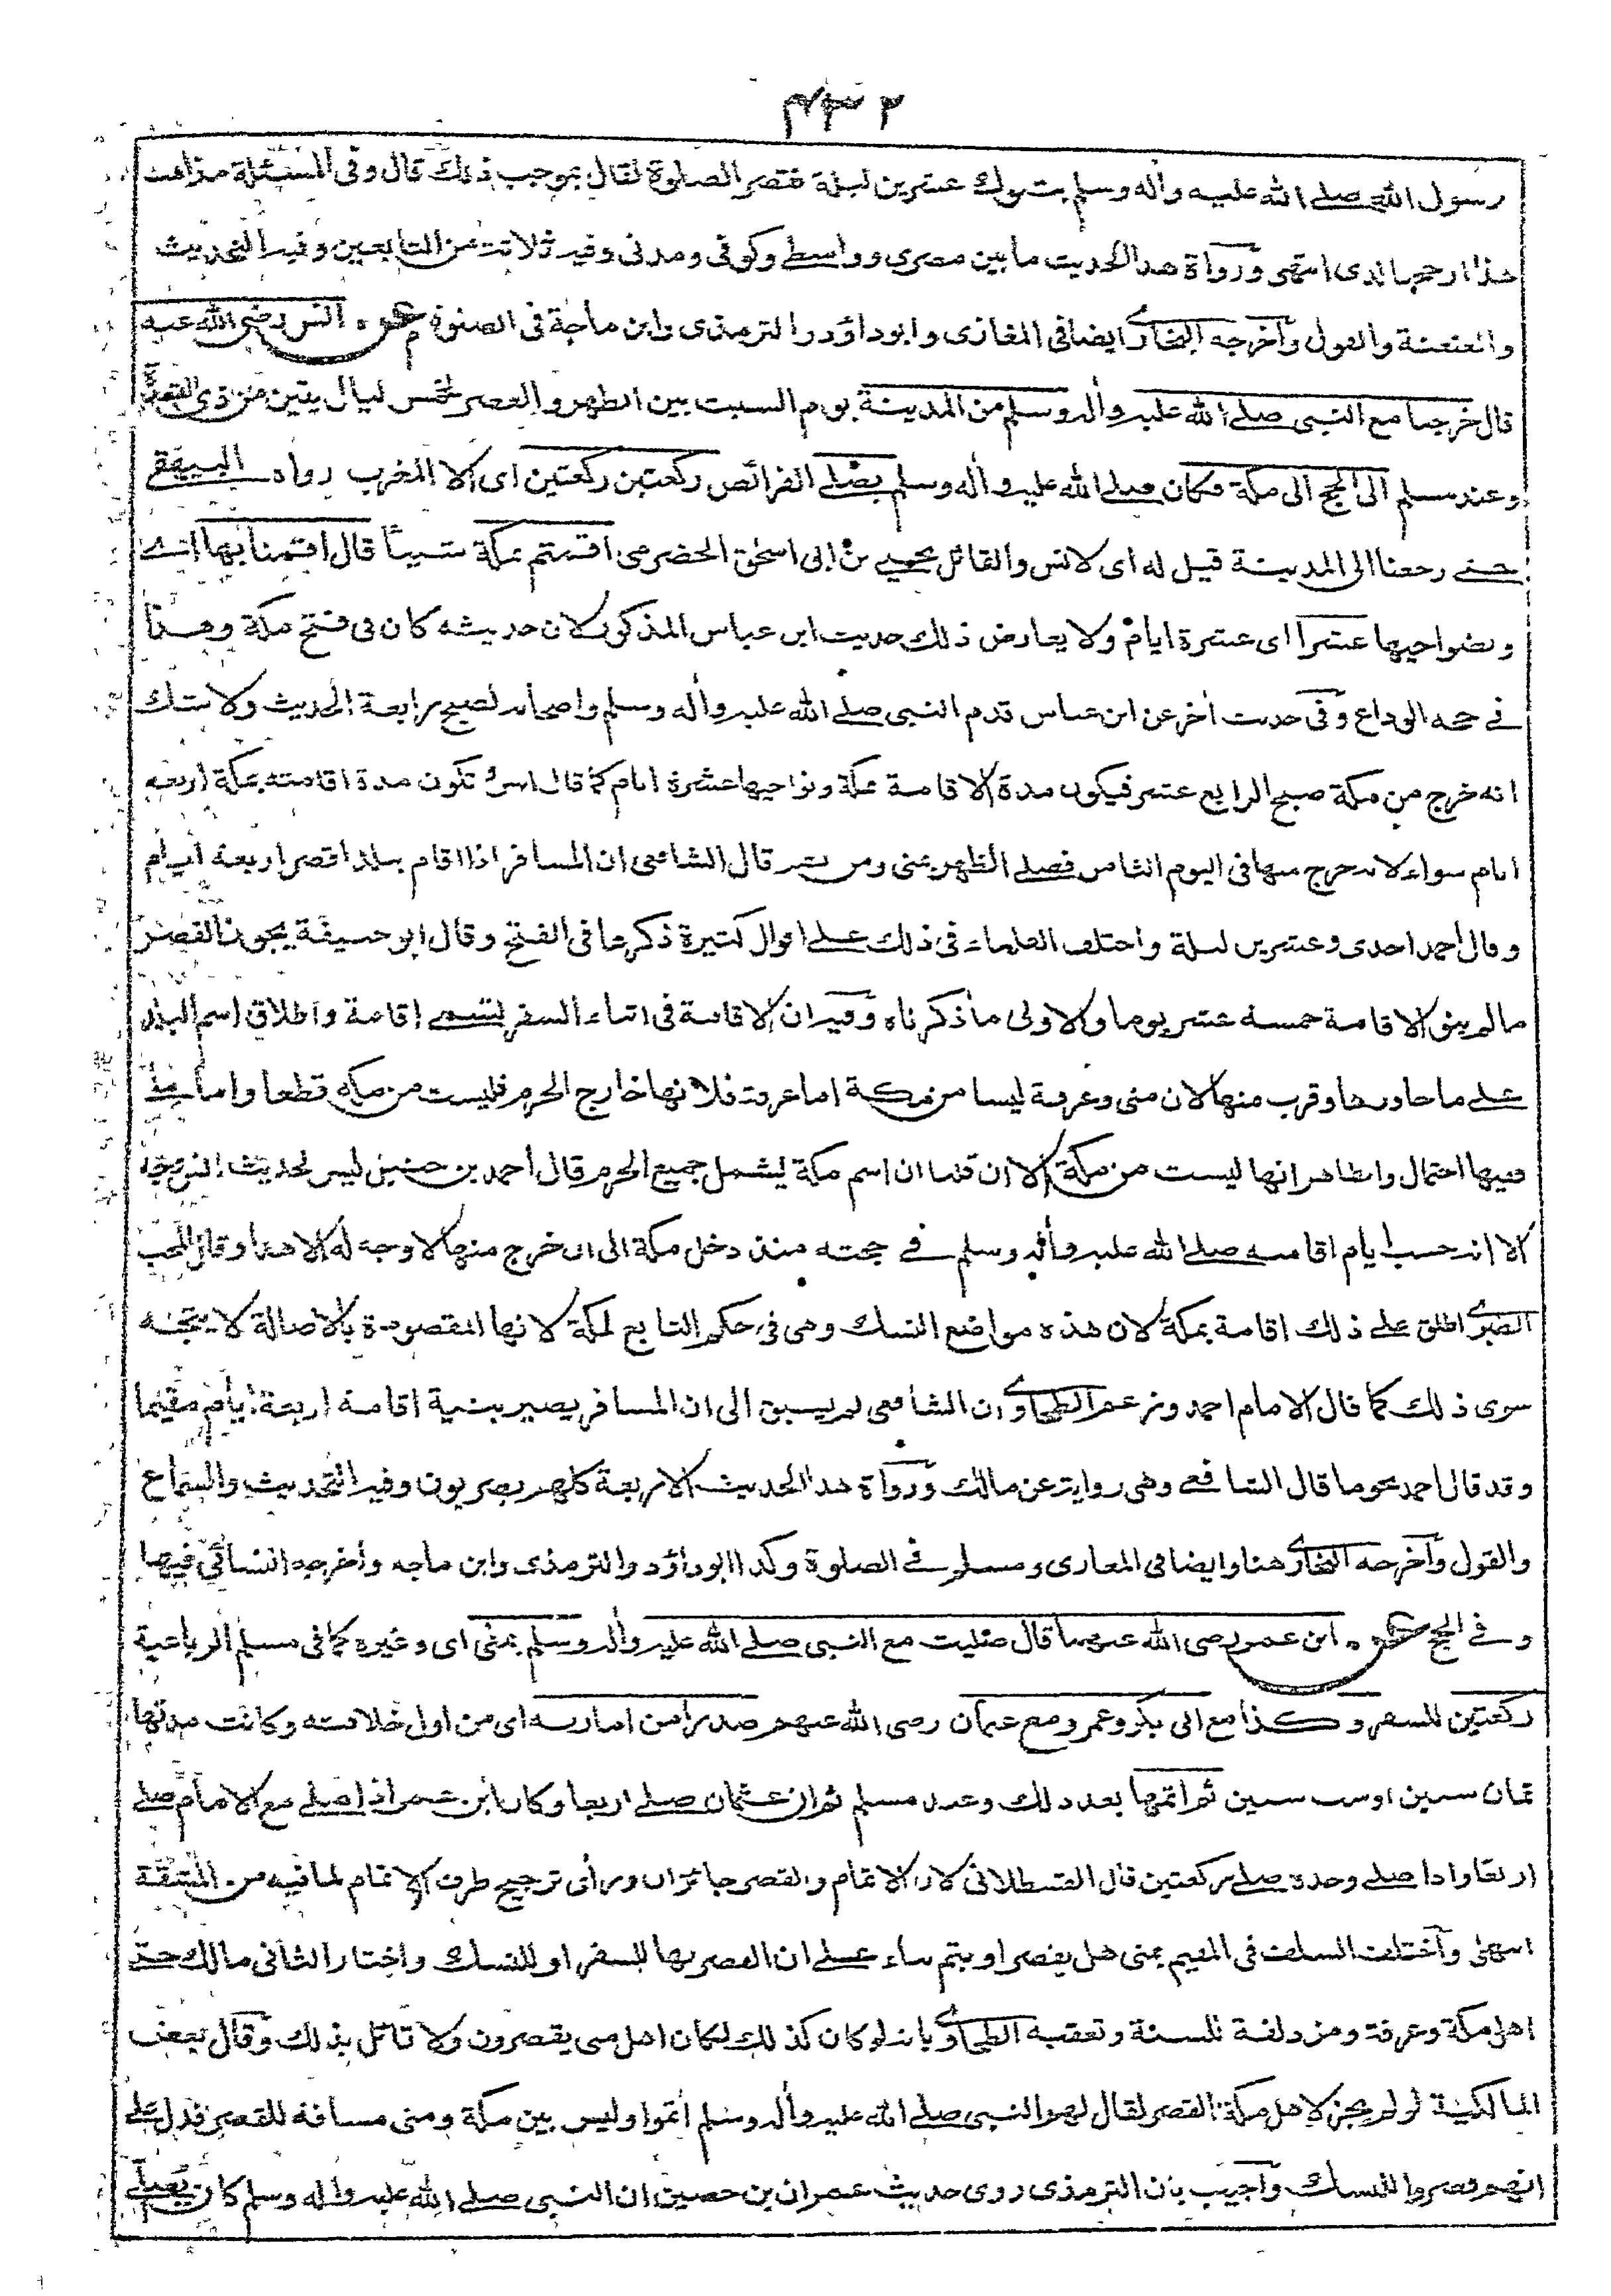 ٤٣٢
رسول الله صلے الله عليه واٰله وسلم بتبوك عشرين ليلة يقصر الصلوة لقال بموجب ذلك قال وفى المسئلة مذاهب
هذا ارجحها لدى انتهى ورواة هذا الحديث ما بين مصرى وواسطے وكوفى ومدنى وفيه ثلاثة من التابعين وفيه التحديث
والعنعنة والقول وأخرجه البخارى ايضا فى المغازى وابوداؤد والترمذى وابن ماجة فى الصلوة عن انس رضى الله عنه
قال خرجنا مع النبى صلے الله عليه واٰله وسلم من المدينة يوم السبت بين الظهر والعصر لخمس ليال بقين من ذى القعدة
وعند مسلم الى الحج الى مكة فكان صلے الله عليه واٰله وسلم يصلے الفرائص ركعتين ركعتين اى الا المغرب رواه البيهقے
حتے رجعنا الى المدينة قيل له اى لانس والقائل يحيے بن ابى اسحٰق الحضرمى اقمتم بمكة شيئا قال اقمنا بها اے
وبضواحيها عشرا اى عشرة ايام ولا يعارض ذلك حديث ابن عباس المذكور لان حديثه كان فى فتح مكة وهذا
فے حجة الوداع وفى حديث أخر عن ابن عباس قدم النبى صلے الله عليه واٰله وسلم واصحابه لصبح رابعة الحديث ولا شك
انه خرج من مكة صبح الرابع عشر فيكون مدة الاقامة بمكة ونواحيها عشرة ايام كما قال انس تكون مدة اقامته بمكة اربعة
ايام سواء لانه خرج منها فى اليوم الثامن فصلے الظهر بمنى ومن ثمه قال الشافعى ان المسافر اذا اقام ببلد اقصر اربعة ايام
وقال احمد احدى وعشرين ليلة واختلف العلماء فى ذلك علے اقوال كثيرة ذكرها فى الفتح وقال ابو حنيفة يجوز القصر
ما لم ينو الاقامة خمسة عشر يوما والاولى ما ذكرناه وفيه ان الاقامة فى اثناء السفر تسمے اقامة واطلاق اسم البلد
علے ما جاورها وقرب منها لان منى وعرفة ليسا من مكة اما عرفة فلانها خارج الحرم فليست من مكة قطعا واما منے
ففيها احتمال والظاهر انها ليست من مكة الا ان قلنا ان اسم مكة يشمل جميع الحرم قال احمد بن حنبل ليس لحديث انس وجه
الا انه حسب ايام اقامته صلے الله عليه واٰله وسلم فے حجته منذ دخل مكة الى ان خرج منها لا وجه له الا هذا وقال المحب
الطبرى اطلق علے ذلك اقامة بمكة لان هذه مواضع النسك وهى فى حكم التابع لمكة لانها المقصودة بالاصالة لا يتجه
سوى ذلك كما قال الامام احمد وزعم الطحاوى ان الشافعى لم يسبق الى ان المسافر يصير بنية اقامة اربعة ايام مقيما
وقد قال احمد نحو ما قال الشافعے وهى رواية عن مالك ورواة هذا الحديث الاربعة كلهم بصريون وفيه التحديث والسماع
والقول وأخرجه البخارى هنا وايضا فى المغازى ومسلم فے الصلوة وكذا ابوداؤد والترمذى وابن ماجه وأخرجه النسائى فيها
وفے الحج عن ابن عمر رضى الله عنهما قال صليت مع النبى صلے الله عليه واٰله وسلم بمنى اى وغيره كما فى مسلم الرباعية
ركعتين للسفر وكذا مع ابى بكر وعمر ومع عثمان رضى الله عنهم صدرا من امارته اى من اول خلافته وكانت مدتها
ثمان سنين اوست سنين ثم اتمها بعد ذلك وعند مسلم ثم ان عثمان صلے اربعا وكان ابن عمر اذا صلے مع الامام صلے
اربعا واذا صلے وحده صلے ركعتين قال القسطلانى لان الاتمام والقصر جائزان ورأى ترجيح طرف الاتمام لما فيه من المشقة
انتهى وأختلف السلف فى المقيم بمنى هل يقصر او يتم بناء علے ان القصر بها للسفر او للنسك واختار الثانى مالك حتے
اهل مكة وعرفة ومزدلفة للسنة وتعقبه الطحاوى بانه لو كان كذلك لكان اهل منى يقصرون ولا قائل بذلك وقال بعض
المالكية لو لم يجز لاهل مكة القصر لقال لهم النبى صلے الله عليه واٰله وسلم اتموا وليس بين مكة ومنى مسافة للقصر فدل علے
انهم قصروا للنسك وأجيب بان الترمذى روى حديث عمران بن حصين ان النبى صلے الله عليه واٰله وسلم كان يصلے